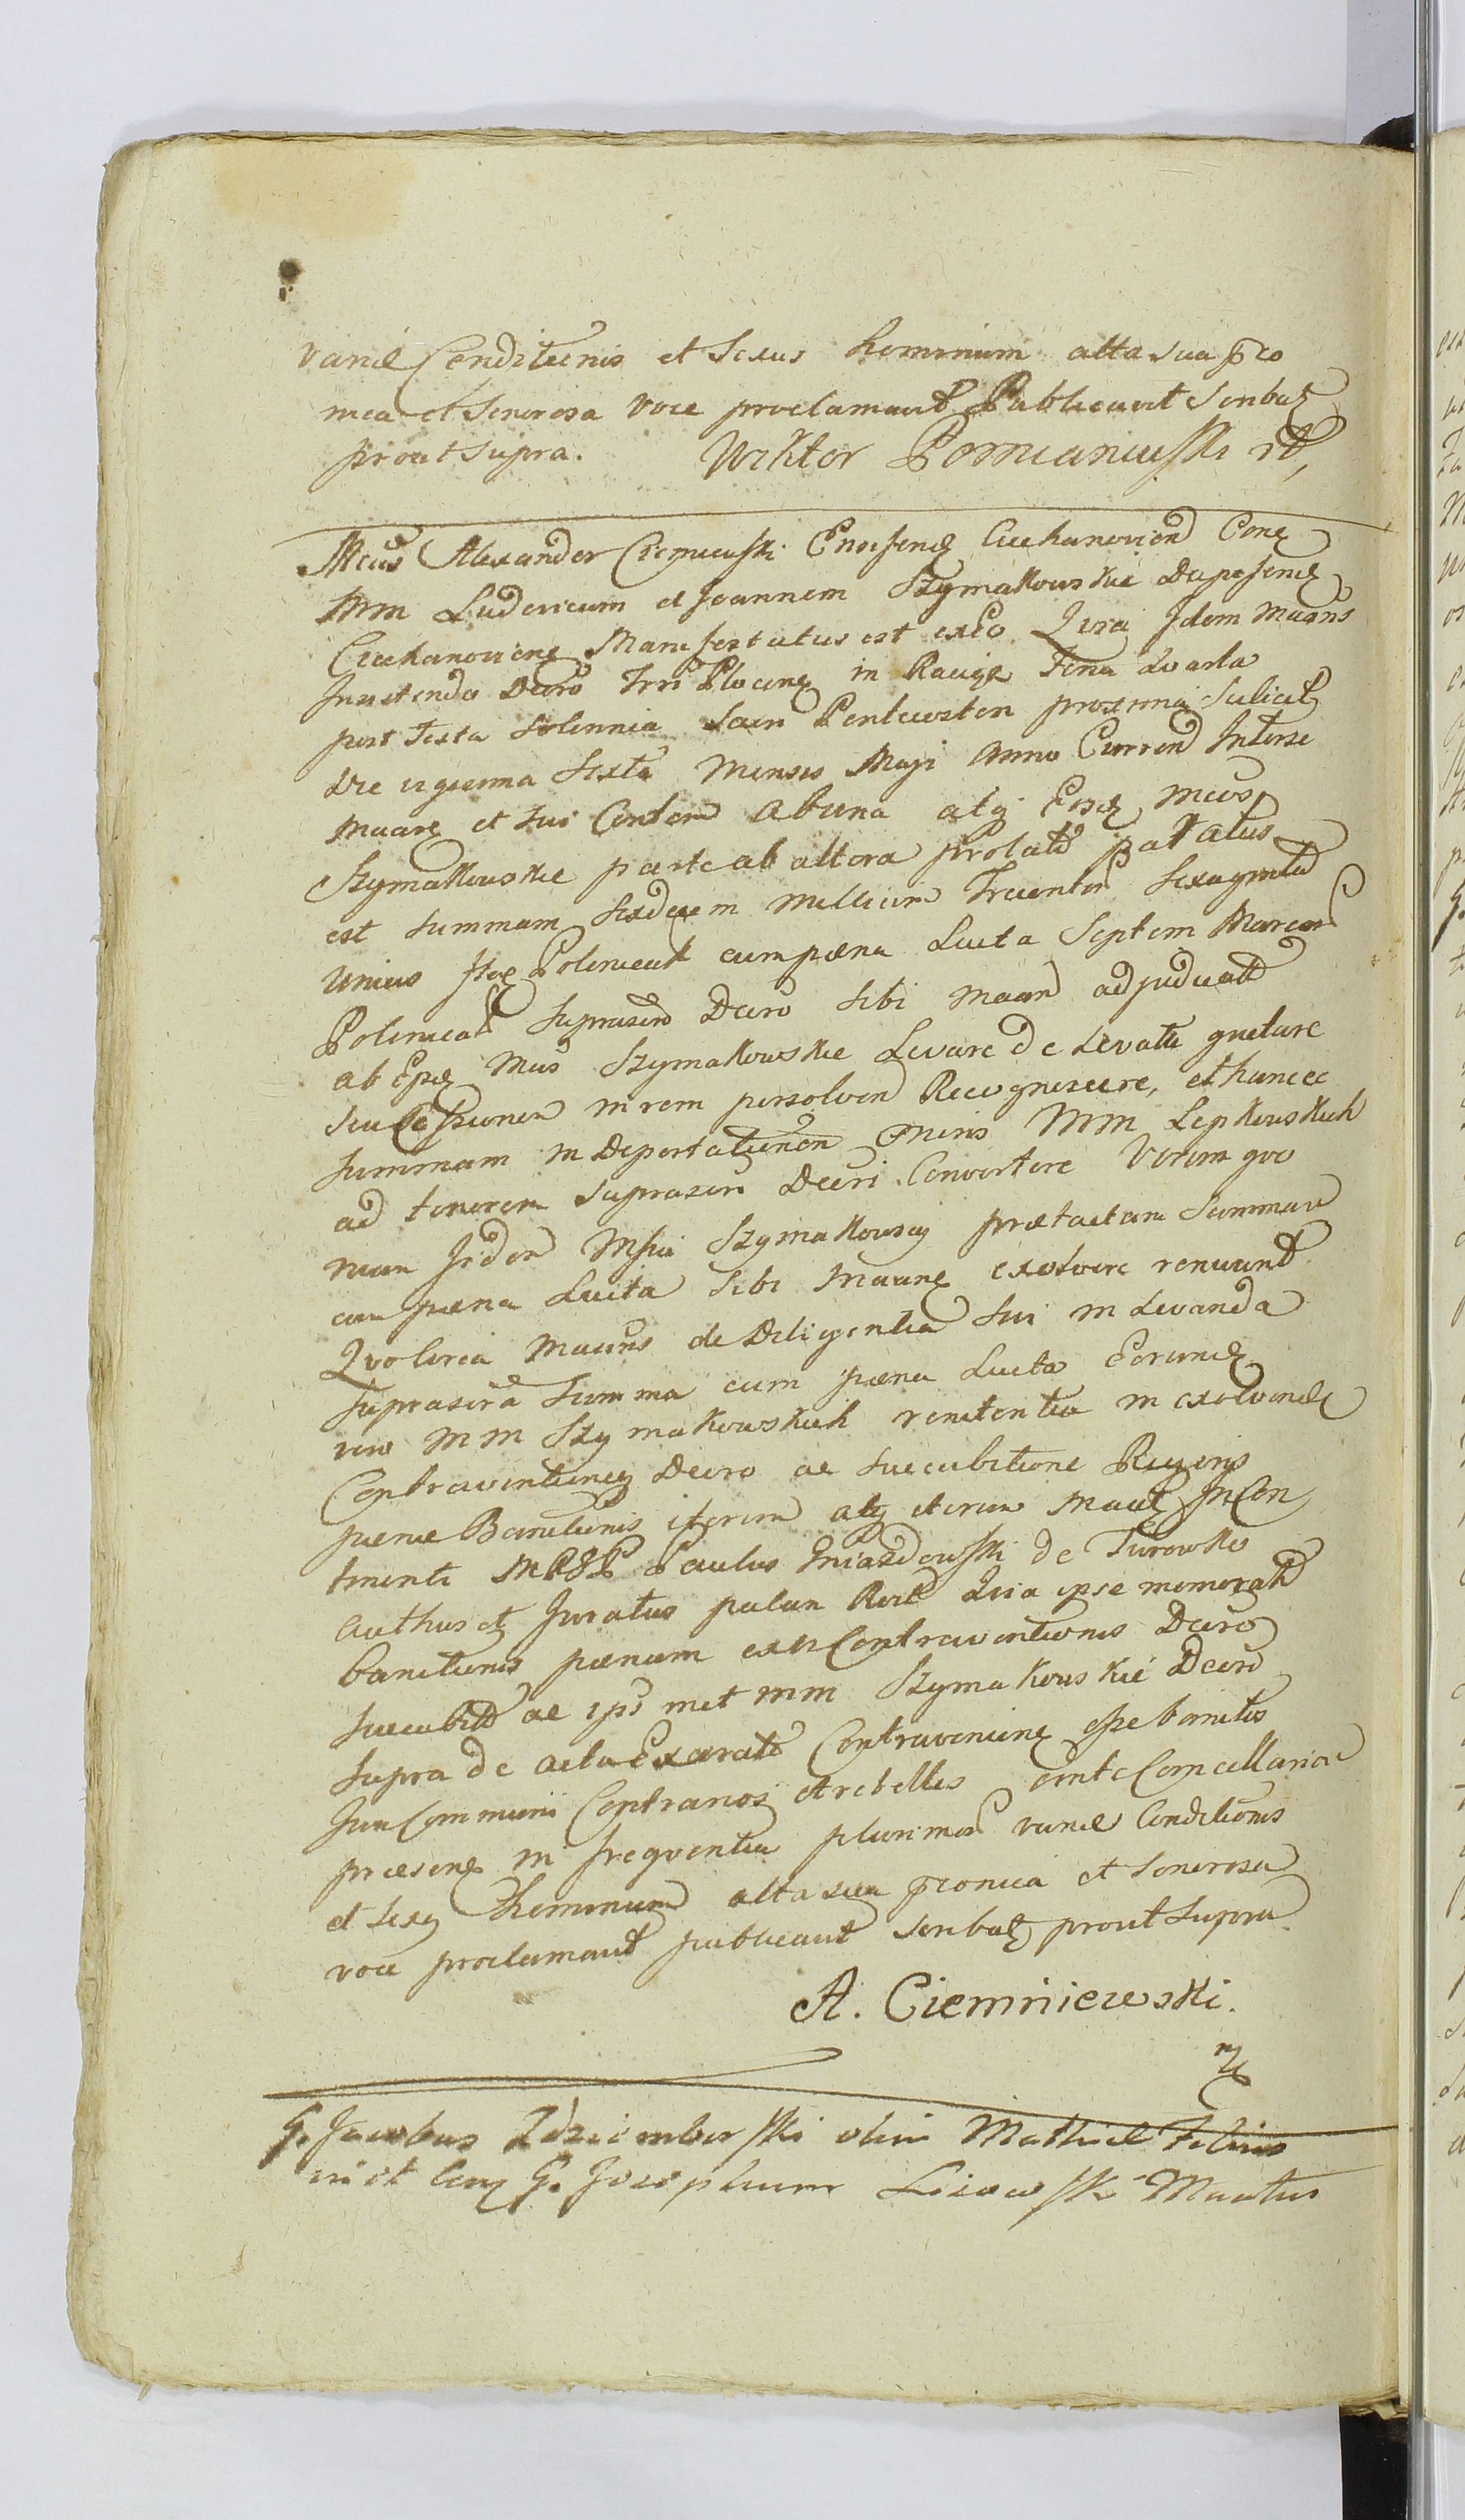 variæ Conditionis et Sexus hominum alta sua pco
nica et Sonorosa voce proclamavit Publicavit Scribat
prout supra. Wiktor Pomianuski
Mcus Alexander Ciemieuski Ensifenꝫ Ciechanovien Conꝫ
MM Ludovicum et Joannem Szymakouskie Dapifenꝫ
Ciechanovienꝫ Manifestatus est exeo Quia Idem Maans
Insistendo Decro Trri Plocenꝫ in Raciąż Feria Quarta
post Festa Solennia Sacri Pentecosten proxima Scilicet
die vigesima Sexta Mensis Maji Anno Curren Interse
Maanꝫ et sui Conten Ab una atqꝫ Eosꝫ Mcos
Szymakouskie parte ab altera prolato paratus
est summam Sexdecem millium Trecentor Sexaginta
unius flor Polonical cum pæna Lucta Septem Marcar
Polonical Suprascro Decro Sibi Maan adjudicat
ab Epꝫ Mcis Szymakouskie Levare de Levatis quietare
seu Cessionem in rem persolven Recognoscere, et hancce
summam in Deportationem Oneris MM Lepkouskich
ad tenorem suprascri Decri Convertere Verum quo
niam Iidem Mfici Szymakouscy prætactam Summam
cum pæna Lucta Sibi Maanꝫ exolvere renuunt
Quolirca Maans de Diligentia Sui in Levanda
suprascra Summa cum pæna Lucta Eorund
vero MM Szymakouskich renitentia in exolvendꝫ
Contraventioneꝫ Decro ac succubitione Rigoris
pænæ Banitionis iterum atqꝫ iterum Maatꝫ In Con
tinenti Paulus Gniazdouski de Turowko
authus etꝫ Juratus palam Recd Quia ipse memorat
Banitionis pænam ex Contraventionis Decro
succubit ac ips met MM Szymakouskie Decro
supra de actu Exarato Contraveniene esse banitos
Juri Communi Contrarios et rebelles ante Cancellariam
præsenꝫ in frequentia plurimor variæ Conditionis
et sexꝫ Hominum alta sua pconica et Sonorosa
voce proclamavit publicavit scribat prout supra
A. Ciemniewski.
G. Jacobus Zdziembor ski olim Mathiæ Filius
in et Conꝫ G. Josephum Lisow ski Maatus